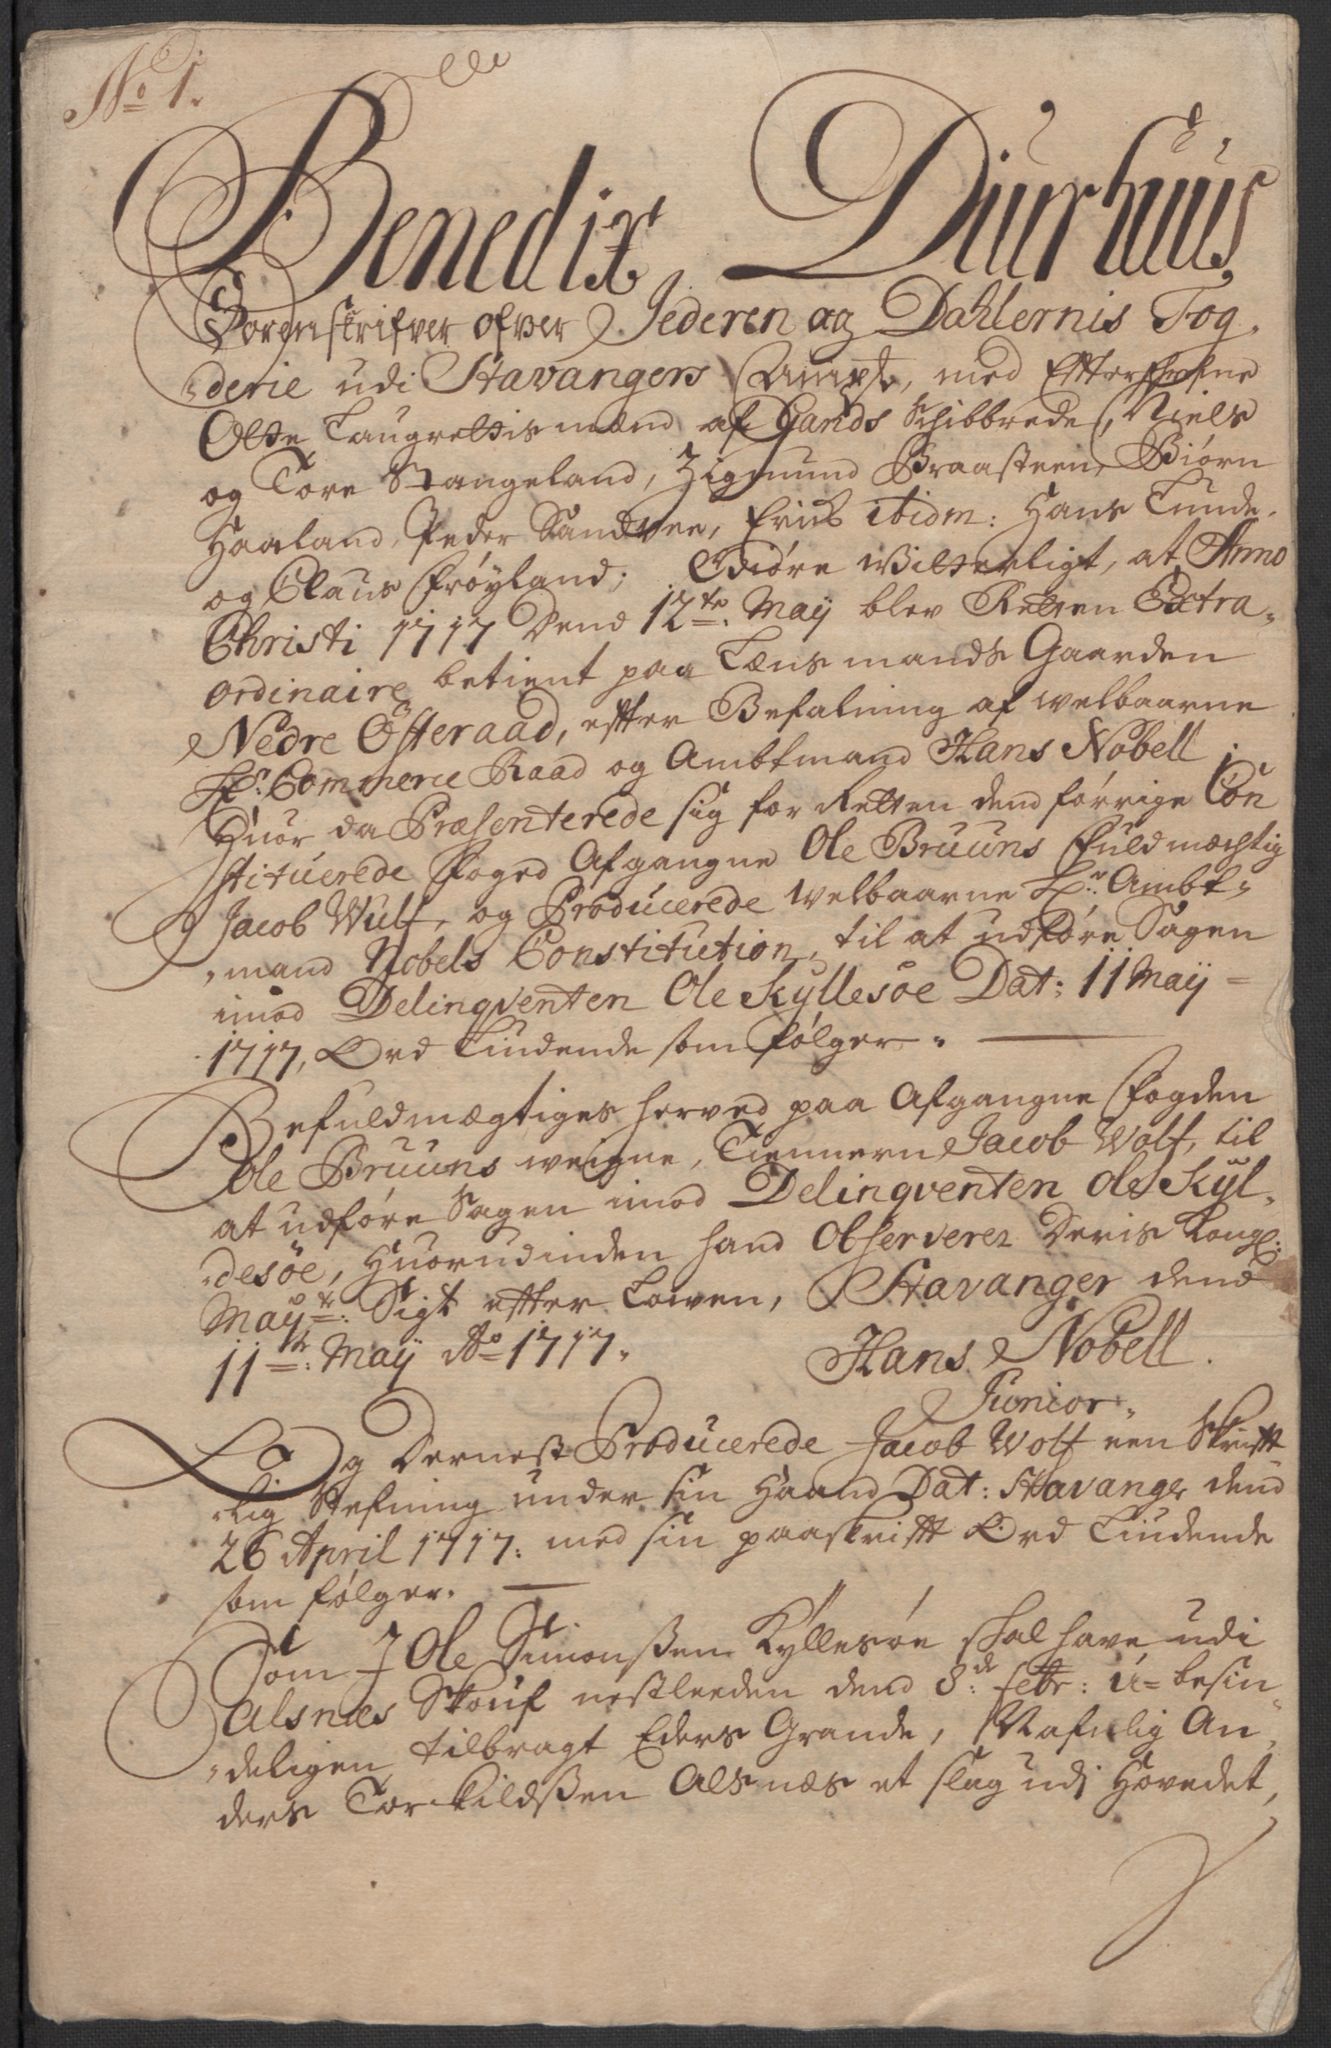 No 1.
Benedix Diurhuus
Sorenskrifver ofver Jederen og Dahlernis Fog-
derie udi Stavangers Ampt, med Efterschrefne
Otte Laugrettismænd af Gands Schibbrede, Niels
og Tore Stangeland, Zigmund Braasteen, Biørn
Haaland, Peder Sandvee, Erich ibidm: Hans Lunde,
og Claus Frøyland; Giøre Witterligt, at Anno
Christi 1717 Dend 12te: Maÿ blev Retten Extra-
ordinaire betient paa Lensmands Gaarden
Nedre Østeraad, efter Befalning af welbaarne
Hr: Commerce Raad og Ambtmand Hans Nobell;
Huor da Præsenterede sig for Retten dend förrige Con
stituerede Foged Afgangne Ole Bruuns Fuldmæchtig
Jacob Wulf, og Producerede welbaarne Hr: Ambt-
mand Nobels Constitution, til at udføre Sagen
imod Delinqventen Ole Kÿllesøe Dat: 11 Maÿ
1717, Ord Liudende som følger.
Befuldmægtiges herved paa Afgangne Fogden
Ole Bruuns weigne, Tiennern Jacob Wolf, til
at udføre Sagen imod Delinqventen Ole Kÿl-
desöe, Huorudinden hand Observerer Deris Kongl:
Mayts: Sigt efter Lowen, Stavanger dend
11te: Maÿ Ao 1717.
Hans Nobell.
Junior.
Og Dernest Producerede Jacob Wolf een Skrifft
lig Stefning under sin Haand Dat: Stavanger dend
26 April 1717: med sin paaskrifft Ord Liudende
som følger.
Som J Ole Simonßen Kÿllesøe skal have udi
Alsnes Skouf nestleeden dend 8de: febr: u-besin
deligen tilbragt Eders Grande, Nafnlig An-
ders Torkildßen Alsnæs et slag udj Hovedet,